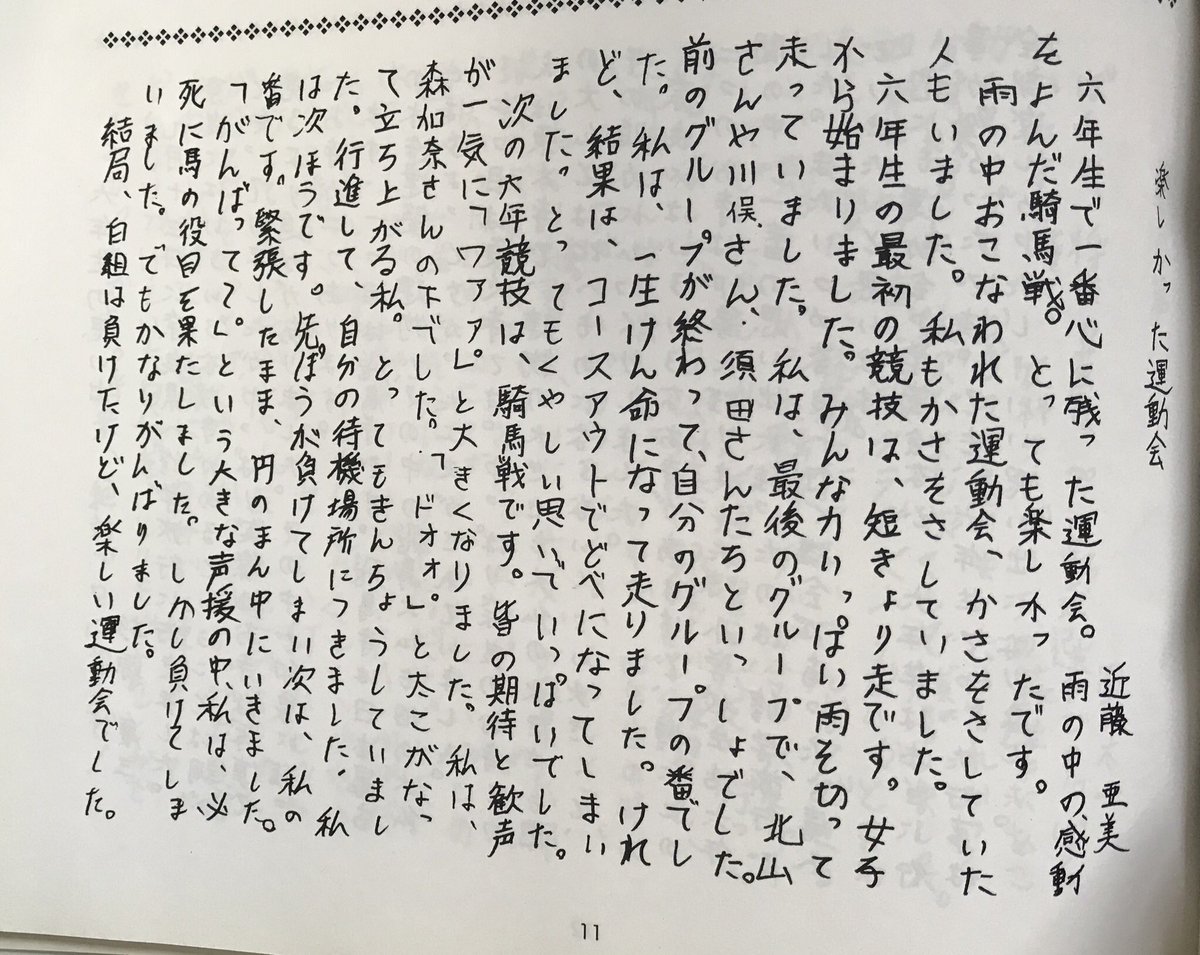 楽しかった運動会
近藤 亜美
六年生で一番心に残った運動会。雨の中の、感動
をよんだ騎馬戦。とっても楽しかったです。
雨の中おこなわれた運動会、かさをさしていた
人もいました。私もかさをさしていました。
六年生の最初の競技は、短きょり走です。女子
から始まりました。みんな力いっぱい雨を切って
走っていました。私は、最後のグループで、北山
さんや川俣さん、須田さんたちといっしょでした。
前のグループが終わって、自分のグループの番でし
た。私は、一生けん命になって走りました。けれ
ど、結果は、コースアウトでどべになってしまい
ました。とってもくやしい思いでいっぱいでした。
次の六年競技は、騎馬戦です。皆の期待と歓声
が一気に「ワァァ」と大きくなりました。私は、
森加奈さんの下でした。「ドォォ。」と太こがなっ
て立ち上がる私。とってもきんちょうしていまし
た。行進して、自分の待機場所につきました。私
は次ほうです。先ぽうが負けてしまい次は、私の
番です。緊張したまま、円のまん中にいきました。
「がんばってて。」という大きな声援の中、私は、必
死に馬の役目を果たしました。しかし負けてしま
いました。でもかなりがんばりました。
結局、白組は負けたけど、楽しい運動会でした。
11